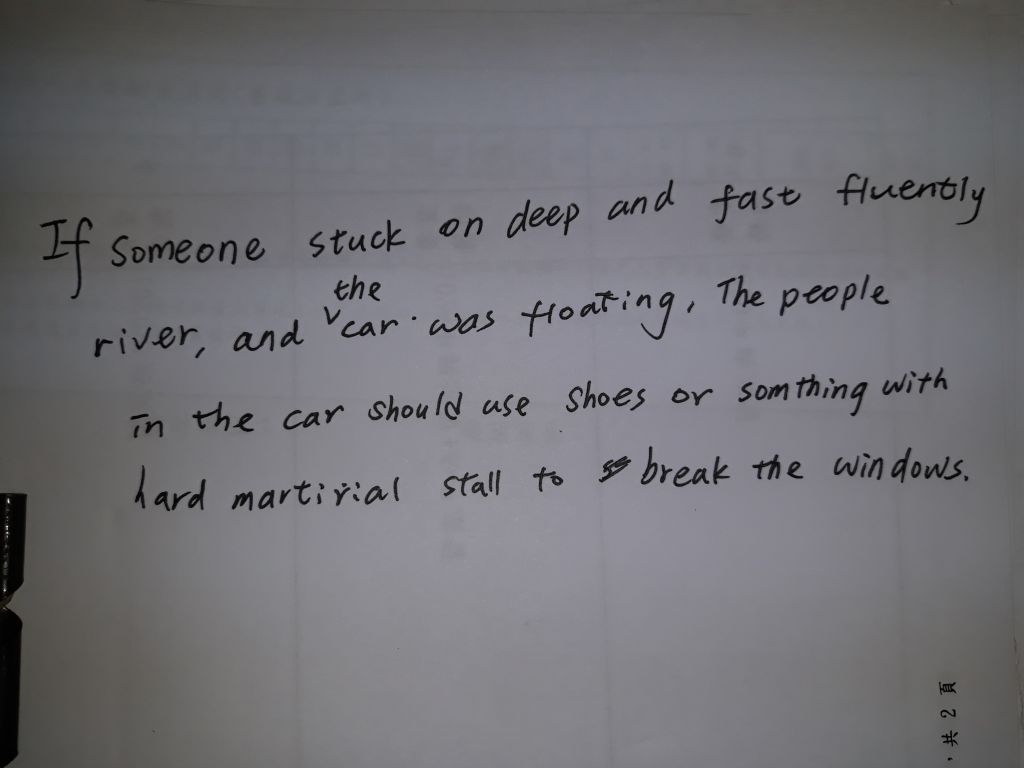 If someone stuck on deep and fast fluently
river, and the car was floating, The people
in the car should use shoes or somthing with
hard martirial stall to break the windows.
，共 2 頁